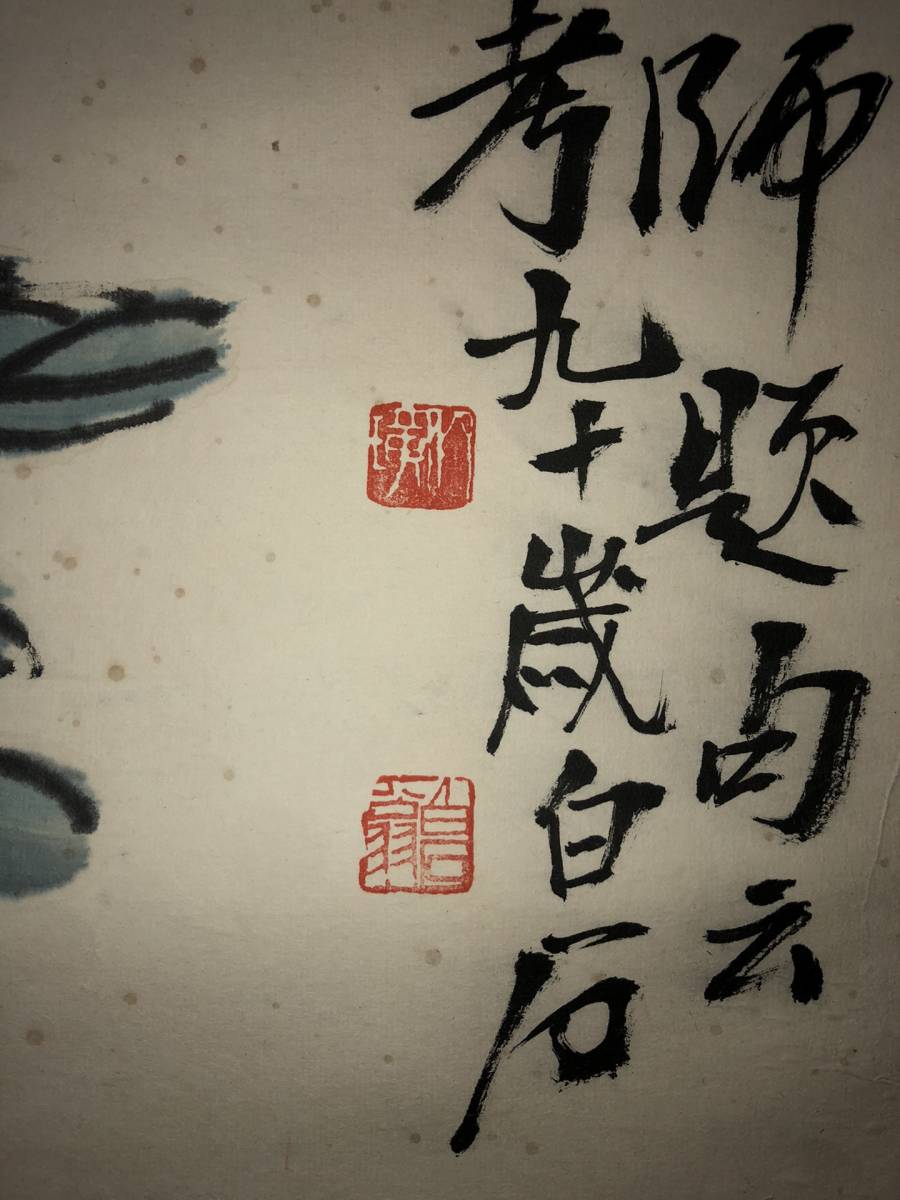 師題句云
考九十歲白石